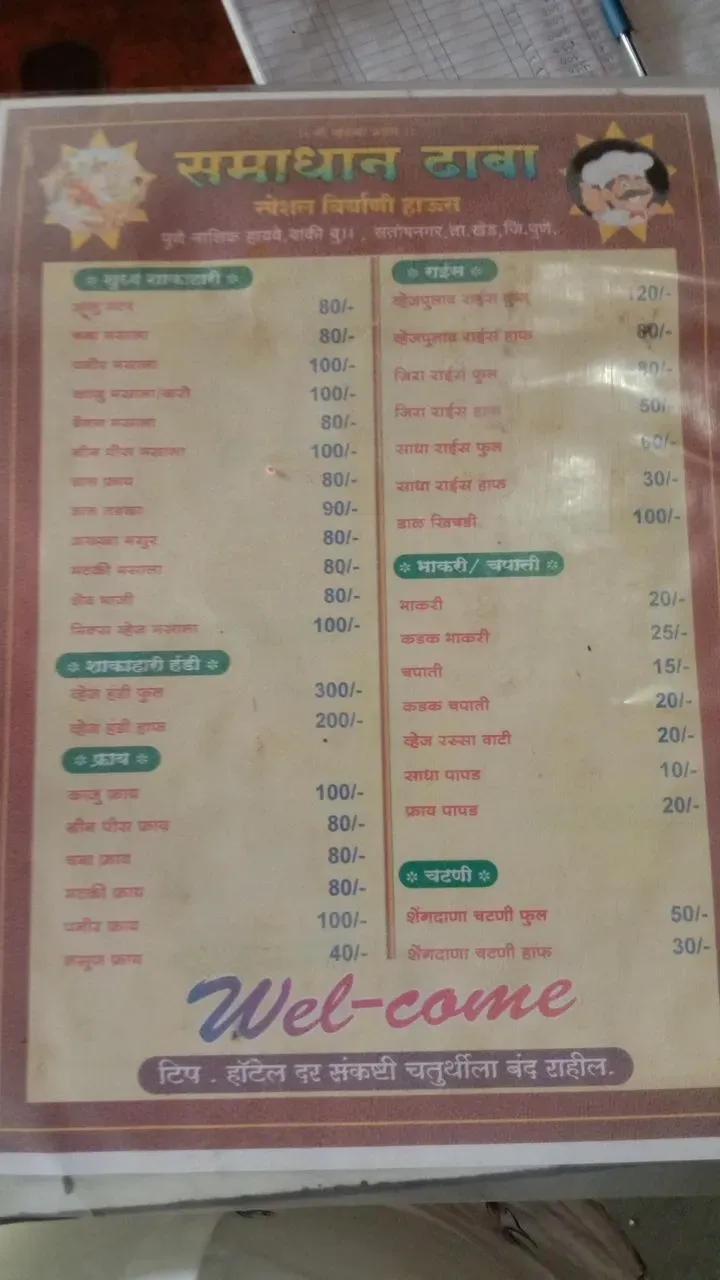 समाधान ढाबा
स्पेशल बिर्याणी हाऊस
पुणे नाशिक हायवे, वाकी बु।। , संतोषनगर, ता. खेड, जि. पुणे.
शुध्द शाकाहारी
मटर 80/-
चना मसाला 80/-
पनीर मसाला 100/-
काजु मसाला/करी 100/-
बैंगन मसाला 80/-
ग्रीन पीस मसाला 100/-
डाल फ्राय 80/-
डाल तडका 90/-
अख्खा मसुर 80/-
मटकी मसाला 80/-
शेव भाजी 80/-
मिक्स व्हेज मसाला 100/-
शाकाहारी हंडी
व्हेज हंडी फुल 300/-
व्हेज हंडी हाफ 200/-
फ्राय
काजु फ्राय 100/-
ग्रीन पीस फ्राय 80/-
चना फ्राय 80/-
मटकी फ्राय 80/-
पनीर फ्राय 100/-
लसुण फ्राय 40/-
राईस
व्हेजपुलाव राईस फुल 120/-
व्हेजपुलाव राईस हाफ 80/-
जिरा राईस फुल 80/-
जिरा राईस हाफ 50/-
साधा राईस फुल 60/-
साधा राईस हाफ 30/-
डाळ खिचडी 100/-
भाकरी/ चपाती
भाकरी 20/-
कडक भाकरी 25/-
चपाती 15/-
कडक चपाती 20/-
व्हेज रस्सा वाटी 20/-
साधा पापड 10/-
फ्राय पापड 20/-
चटणी
शेंगदाणा चटणी फुल 50/-
शेंगदाणा चटणी हाफ 30/-
Wel-come
टिप . हॉटेल दर संकष्टी चतुर्थीला बंद राहील.